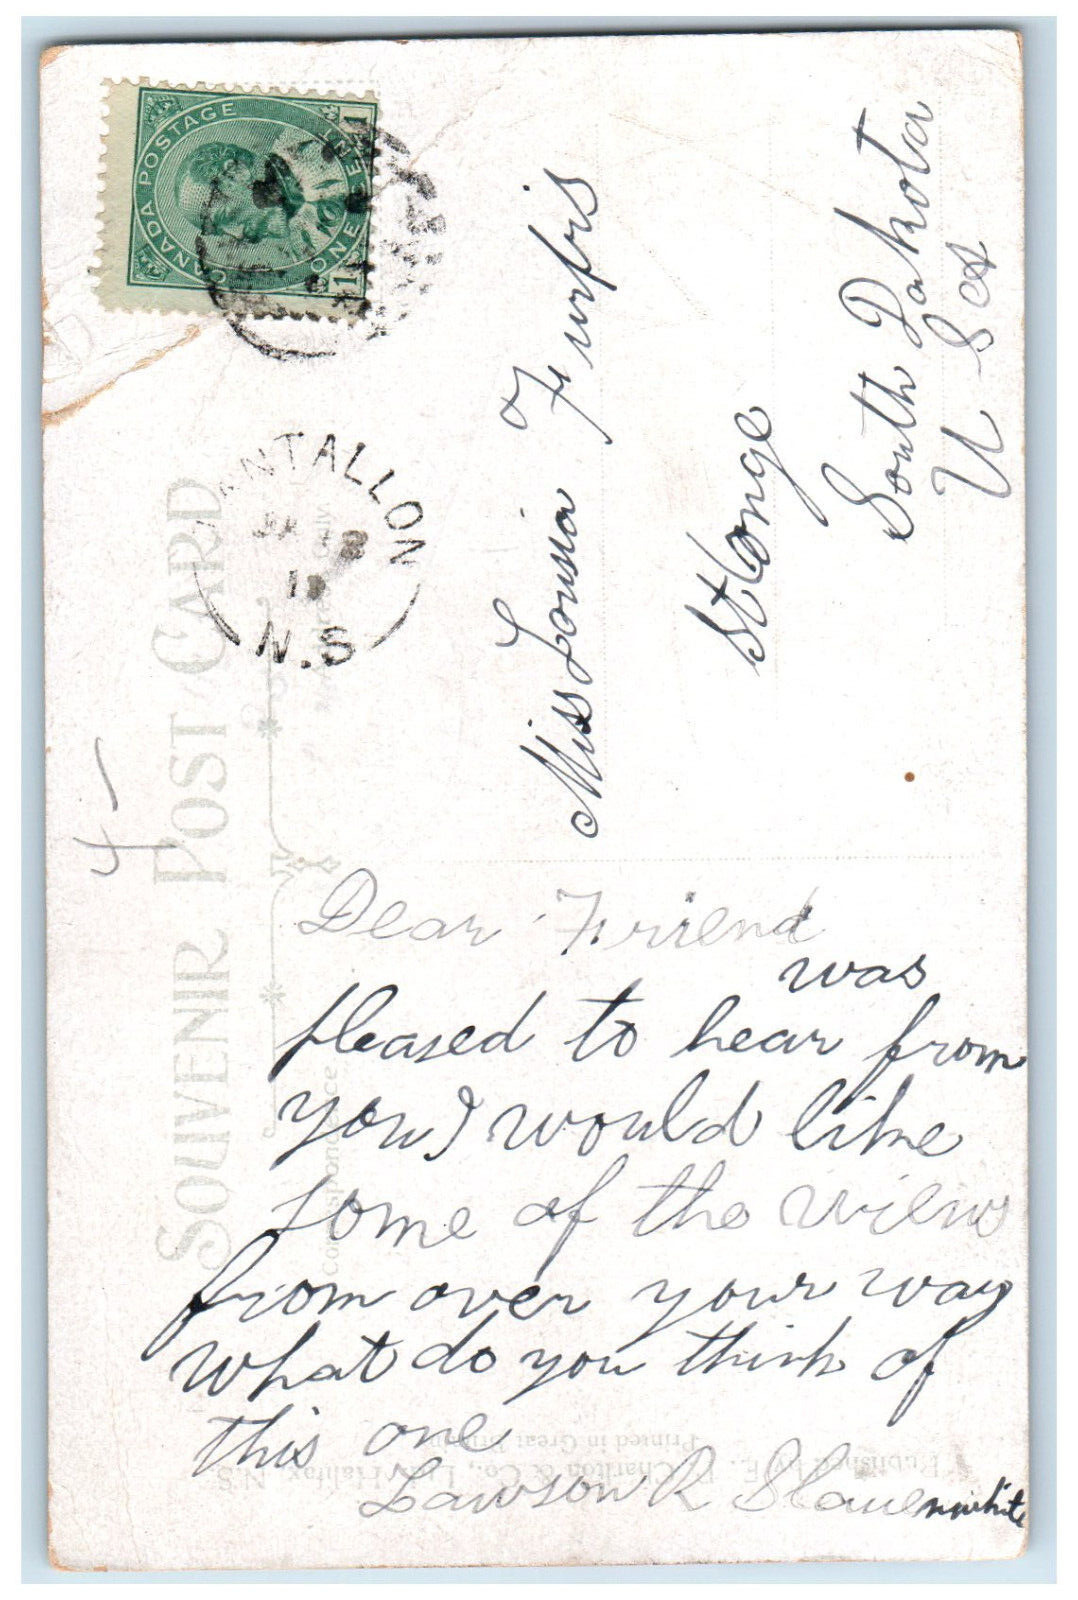 CANADA POSTAGE
ONE CENT
1 1
ANTALLON
JA 18
N.S
SOUVENIR POST CARD
Correspondence
Only
4-
Miss Lousia Furfris
St Conge
South Dakota
U S of
Dear Frriend
was
pleased to hear from
you I would like
some of the views
from over your way
what do you think of
this one
Lawson R Slauenwhite
Published by F. Charlton & Co., Ltd. Halifax, N.S.
Printed in Great Britain